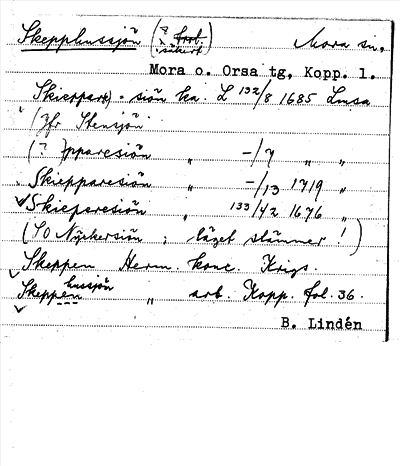 Skepphussjön (? forb. osäkert) Mora sn.
Mora o. Orsa tg, Kopp. l.
Skieppare - siön ka. L 132/8 1685 Lmsa
(Jfr Stensjön
(?)pparesiön " -/7 " "
Skiepparesiön " -/13 1719 "
Skieparesiön " 133/42 1676 "
(SO Nyckersiön ; läget stämmer !)
Skeppen Herm. konc. Krigs.
Skeppenhussjön " arb. Kopp. fol. 36.
B. Lindén